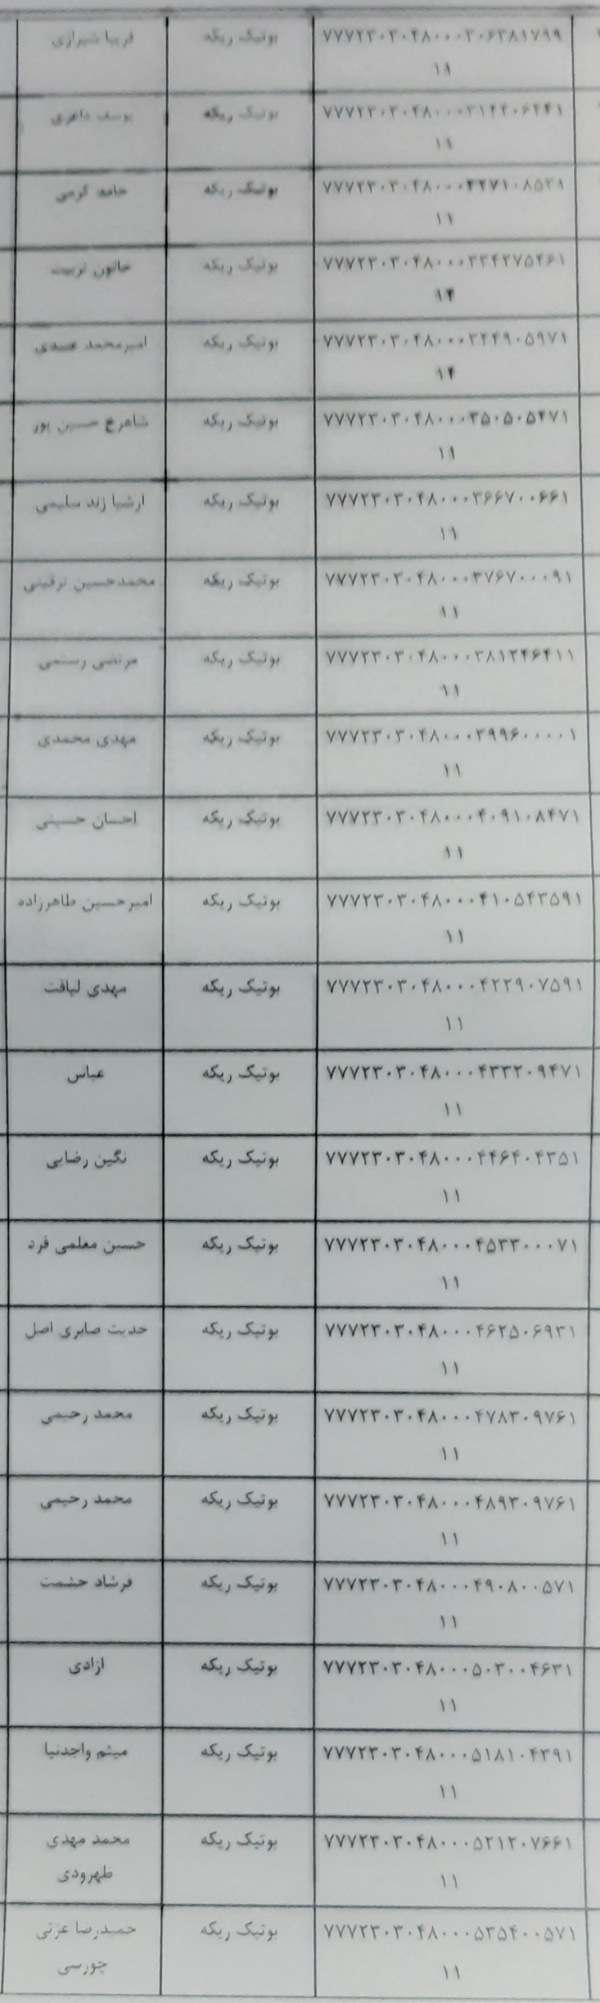 فریبا شیرازی بوتیک ریکه ۷۷۷۲۳۰۳۰۴۸۰۰۰۳۰۶۳۸۱۷۹۹
۱۱
یوسف طاهری بوتیک ریکه
۱۱
حامد کرمی بوتیک ریکه ۷۷۷۲۳۰۳۰۴۸۰۰۰۳۲۷۱۰۸۵۳۱
۱۱
خاتون تربیت بوتیک ریکه ۷۷۷۲۳۰۳۰۴۸۰۰۰۳۳۴۲۷۵۴۶۱
۱۴
امیرمحمد عبدی بوتیک ریکه ۷۷۷۲۳۰۳۰۴۸۰۰۰۳۴۴۹۰۵۹۷۱
۱۴
شاهرخ حسین پور بوتیک ریکه ۷۷۷۲۳۰۳۰۴۸۰۰۰۳۵۰۵۰۵۴۷۱
۱۱
ارشیا زند سلیمی بوتیک ریکه ۷۷۷۲۳۰۳۰۴۸۰۰۰۳۶۶۷۰۰۶۶۱
۱۱
محمدحسین ترقینی بوتیک ریکه ۷۷۷۲۳۰۳۰۴۸۰۰۰۳۷۶۷۰۰۰۹۱
۱۱
مرتضی رستمی بوتیک ریکه ۷۷۷۲۳۰۳۰۴۸۰۰۰۳۸۱۲۴۶۴۱۱
۱۱
مهدی محمدی بوتیک ریکه ۷۷۷۲۳۰۳۰۴۸۰۰۰۳۹۹۶۰۰۰۰۱
۱۱
احسان حسینی بوتیک ریکه ۷۷۷۲۳۰۳۰۴۸۰۰۰۴۰۹۱۰۸۴۷۱
۱۱
امیرحسین طاهرزاده بوتیک ریکه ۷۷۷۲۳۰۳۰۴۸۰۰۰۴۱۰۵۴۳۵۹۱
۱۱
مهدی لیاقت بوتیک ریکه ۷۷۷۲۳۰۳۰۴۸۰۰۰۴۲۲۹۰۷۵۹۱
۱۱
عباس بوتیک ریکه ۷۷۷۲۳۰۳۰۴۸۰۰۰۴۳۳۲۰۹۴۷۱
۱۱
نگین رضایی بوتیک ریکه ۷۷۷۲۳۰۳۰۴۸۰۰۰۴۴۶۴۰۴۳۵۱
۱۱
حسین معلمی فرد بوتیک ریکه ۷۷۷۲۳۰۳۰۴۸۰۰۰۴۵۳۳۰۰۰۷۱
۱۱
حدیث صابری اصل بوتیک ریکه ۷۷۷۲۳۰۳۰۴۸۰۰۰۴۶۲۵۰۶۹۳۱
۱۱
محمد رحیمی بوتیک ریکه ۷۷۷۲۳۰۳۰۴۸۰۰۰۴۷۸۳۰۹۷۶۱
۱۱
محمد رحیمی بوتیک ریکه ۷۷۷۲۳۰۳۰۴۸۰۰۰۴۸۹۳۰۹۷۶۱
۱۱
فرشاد حشمت بوتیک ریکه ۷۷۷۲۳۰۳۰۴۸۰۰۰۴۹۰۸۰۰۵۷۱
۱۱
ازادی بوتیک ریکه ۷۷۷۲۳۰۳۰۴۸۰۰۰۵۰۳۰۰۴۶۳۱
۱۱
میثم واجدنیا بوتیک ریکه ۷۷۷۲۳۰۳۰۴۸۰۰۰۵۱۸۱۰۴۳۹۱
۱۱
محمد مهدی بوتیک ریکه ۷۷۷۲۳۰۳۰۴۸۰۰۰۵۲۱۲۰۷۶۶۱
ظهرودی ۱۱
حمیدرضا عزتی بوتیک ریکه ۷۷۷۲۳۰۳۰۴۸۰۰۰۵۳۵۴۰۰۵۷۱
چورسی ۱۱